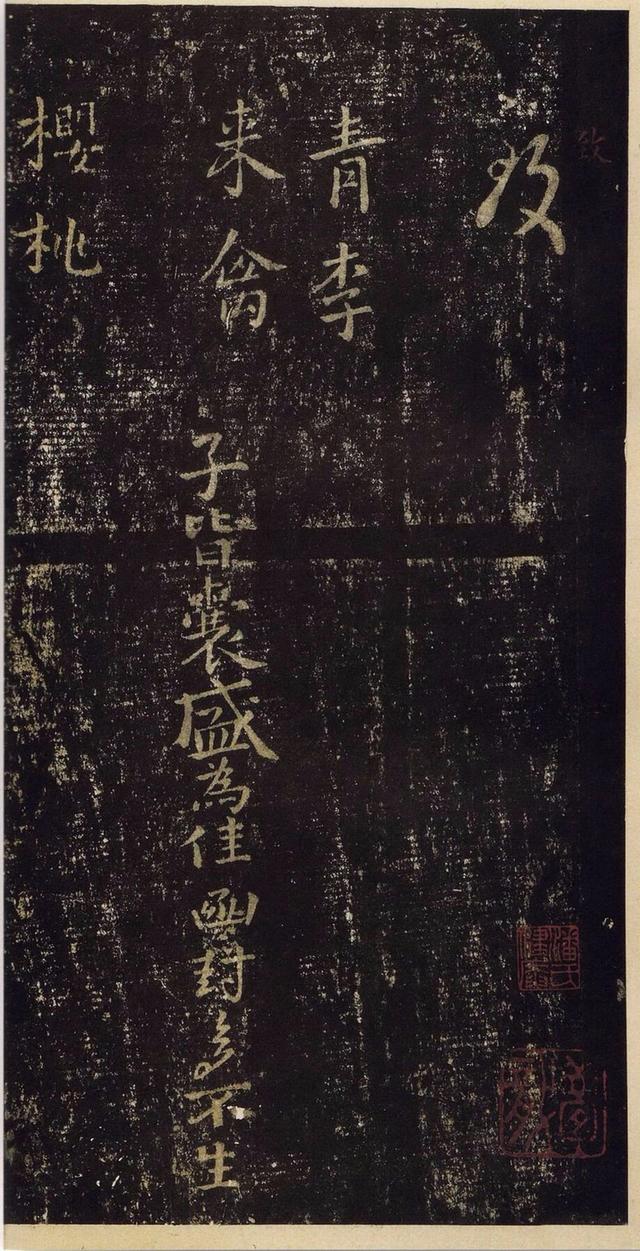 致
致
青李
来禽 子皆囊盛為佳函封多不生
櫻桃